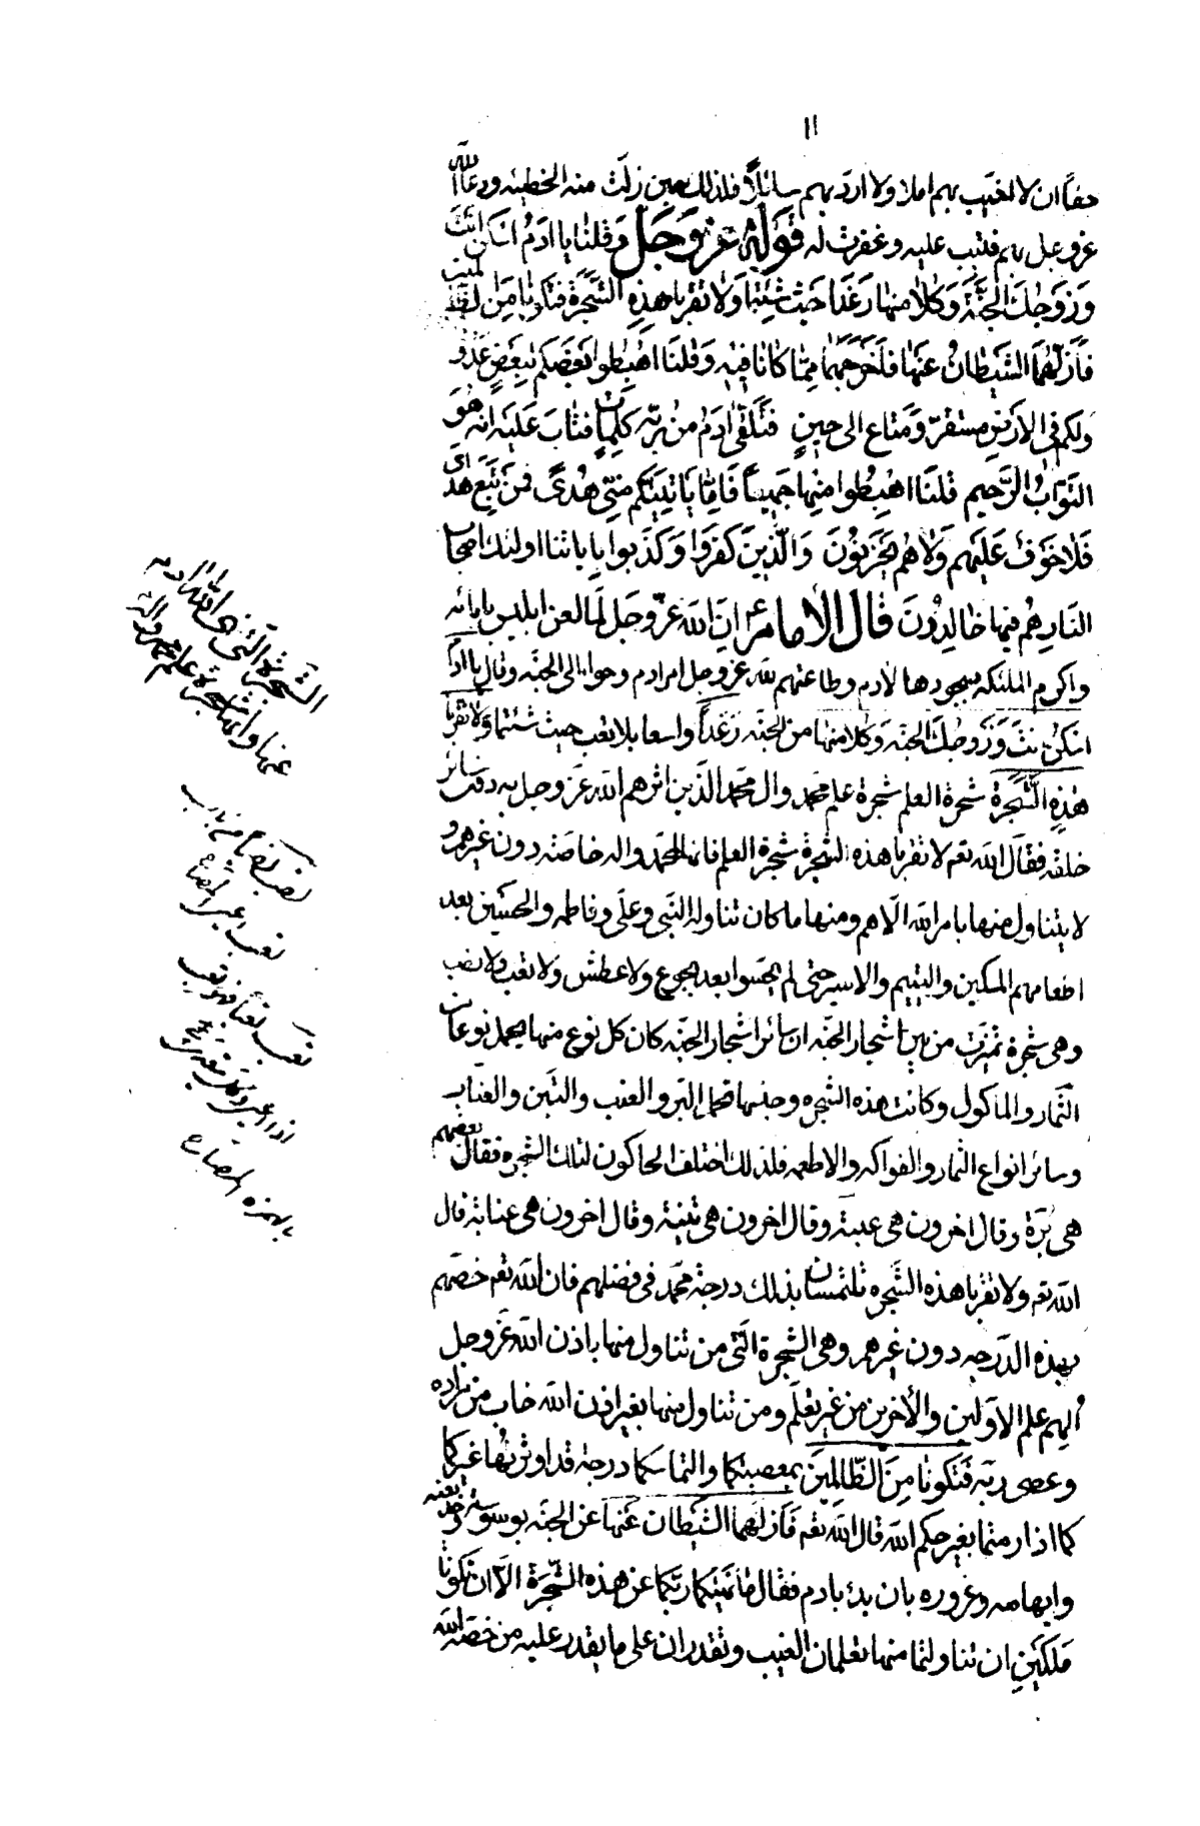 ١١
حقا ان لا اخيب بهم املا ولا ارد بهم سائلا فلذلك حين زلت منه الخطيئه ودعا الله
عز وجل بهم فتيب عليه وغفرت له قَولُه عزّ وَجَلّ وَقُلنا يا ادَمُ اسكن انتَ
وَزَوجُكَ الجَنَّةَ وَكُلا مِنها رَغَدا حَيث شِئتُما وَلا تَقربا هذِهِ الشَّجَرَةَ فَتَكونا مِنَ الظالمين
فَاَزَلَّهُمَا الشَيطانُ عَنها فَاَخرَجَهُما مِمّا كانا فيهِ وَقُلنَا اهبِطوا بَعضُكُم لِبَعضٍ عَدُوٌّ
وَلكم فِي الارضِ مستقرّ وَمَتاع الى حينٍ فَتَلَقّى ادَمُ مِن رَبِّه كَلِماتٍ فَتابَ عَلَيه انه هُوَ
التوّابُ الرَّحيم قُلنَا اهبِطوا مِنها جَميعاً فَاِمّا يَاتِيَنَّكُم مِنّي هُدىً فَمَن تَبِعَ هُدايَ
فَلا خَوفٌ عَلَيهِم وَلا هُم يَحزَنونَ وَالَّذينَ كَفَروا وَكَذَّبوا بِاياتنا اولئك اصحاب
النارِ هُم فيها خالِدُونَ قال الامام ع اِنّ الله عزّ وجل لَمّا لعن ابليس بابائه
واكرم الملئكه بسجودها لادم وطاعتهم لله عز وجل امر ادم وحوا الى الجنّه وقال يا ادمُ
اسكُن انتَ وَزَوجُكَ الجنّه وَكُلا مِنها من الجنّه رَغَداً واسعا بلا تعب حيث شئتما وَلا تقربا
هذِهِ الشَّجَرة شجرة العلم شجرة علم محمد وال محمد الذين اثرهم الله عز وجل به دون سائر
خلقه فقال الله تعم لا تقربا هذه الشجرة شجرة العلم فانها لمحمد واله خاصّه دون غيرهم و
لا يتناول منها بامر الله الّا هم ومنها ما كان تناوله النبى وعلى وفاطمه والحسن والحسين بعد
اطعامهم المسكين واليتيم والاسير حتى لم يحسّوا بعد بجوع ولا عطش ولا تعب ولا نصب
وهى شجرة تميّزت من بين اشجار الجنّه ان سائر اشجار الجنّه كان كل نوع منها يحمل نوعا من
الثمار والماكول وكانت هذه الشجره وجنسها تحمل البر والعنب والتين والعنّاب
وسائر انواع الثمار والفواكه والاطعمه فلذلك اختلف الحاكون لتلك الشجره فقال بعضهم
هى بُرّة وقال اخرون هى عنبة وقال اخرون هى تينة وقال اخرون هى عنابة قال
الله تعم ولا تقربا هذه الشجره تلتمسان بذلك درجة محمّد فى فضلهم فان الله تعم خصّهم
بهذه الدّرجه دون غيرهم وهى الشجرة الّتى من تناول منها باذن الله عز وجل
اُلهم علم الاوّلين والاخرين من غير تعلّم ومن تناول منها بغير اذن الله خاب من مراده
وعصى ربّه فَتَكونا مِنَ الظّالِمينَ بمعصيتكما والتماسكما درجة قد اوثر بها غيركما
كما اذا رمتما بغير حكم الله قال الله تعم فَاَزَلَّهُما الشَيطان عَنها عن الجنّه بوسوسته وخديعته
وايهامه وغروره بان بدء بادم فقال ما نَهيكُما ربّكما عن هذه الشّجَرَة الّا ان تكونا
مَلَكَينِ ان تناولتما منها تعلمان الغيب وتقدران على ما يقدر عليه من خصّه الله
الشجرة الّتى نهى الله ادم
عنها وانها شجرة علم محمد واله